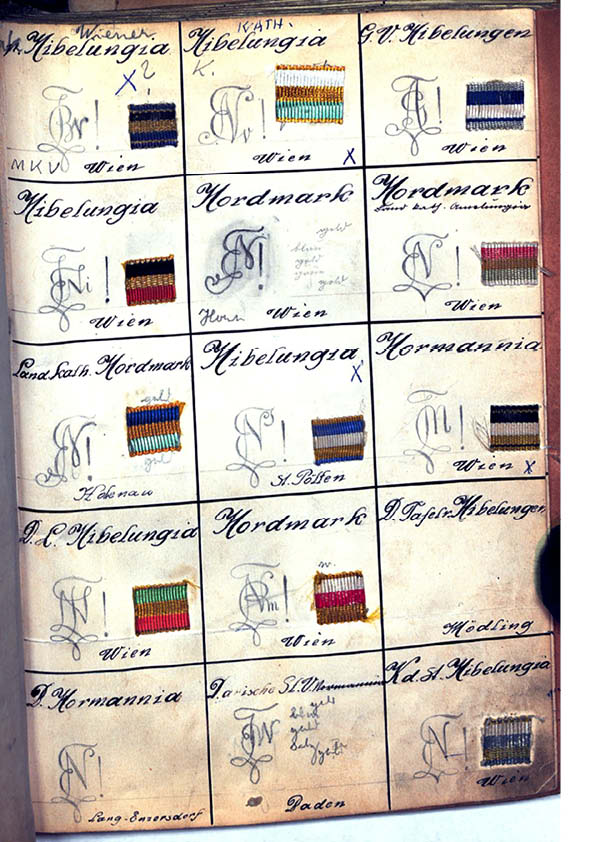 Wiener
Nibelungia
?
MKV
Wien
KATH.
Nibelungia
K.
Wien
G.V. Nibelungen
Wien
Nibelungia
Wien
Nordmark
gold
blau
gold
gold
Wien
Nordmark
Land. kath. Amelungia
Wien
Land. kath. Nordmark
gold
Hohenau
Nibelungia
St. Pölten
Normannia
Wien
D. L. Nibelungia
Wien
Nordmark
w.
Wien
D. Tafelr. Nibelungen
Mödling
D. Normannia
Lang-Enzersdorf
D. arische St. V. Normannia
gelb
blau
gelb
Baden
Kd. St. Nibelungia
Wien